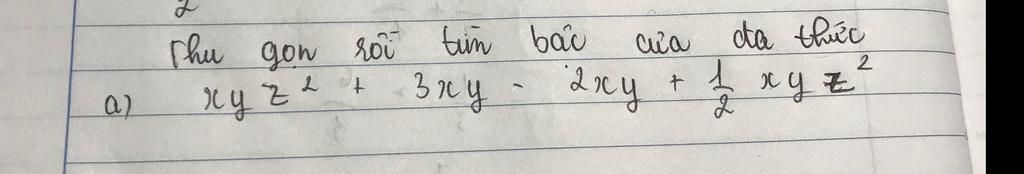 2
Thu gọn rồi tìm bậc của đa thức
a) xyz² + 3xy - 2xy + 1/2 xyz²